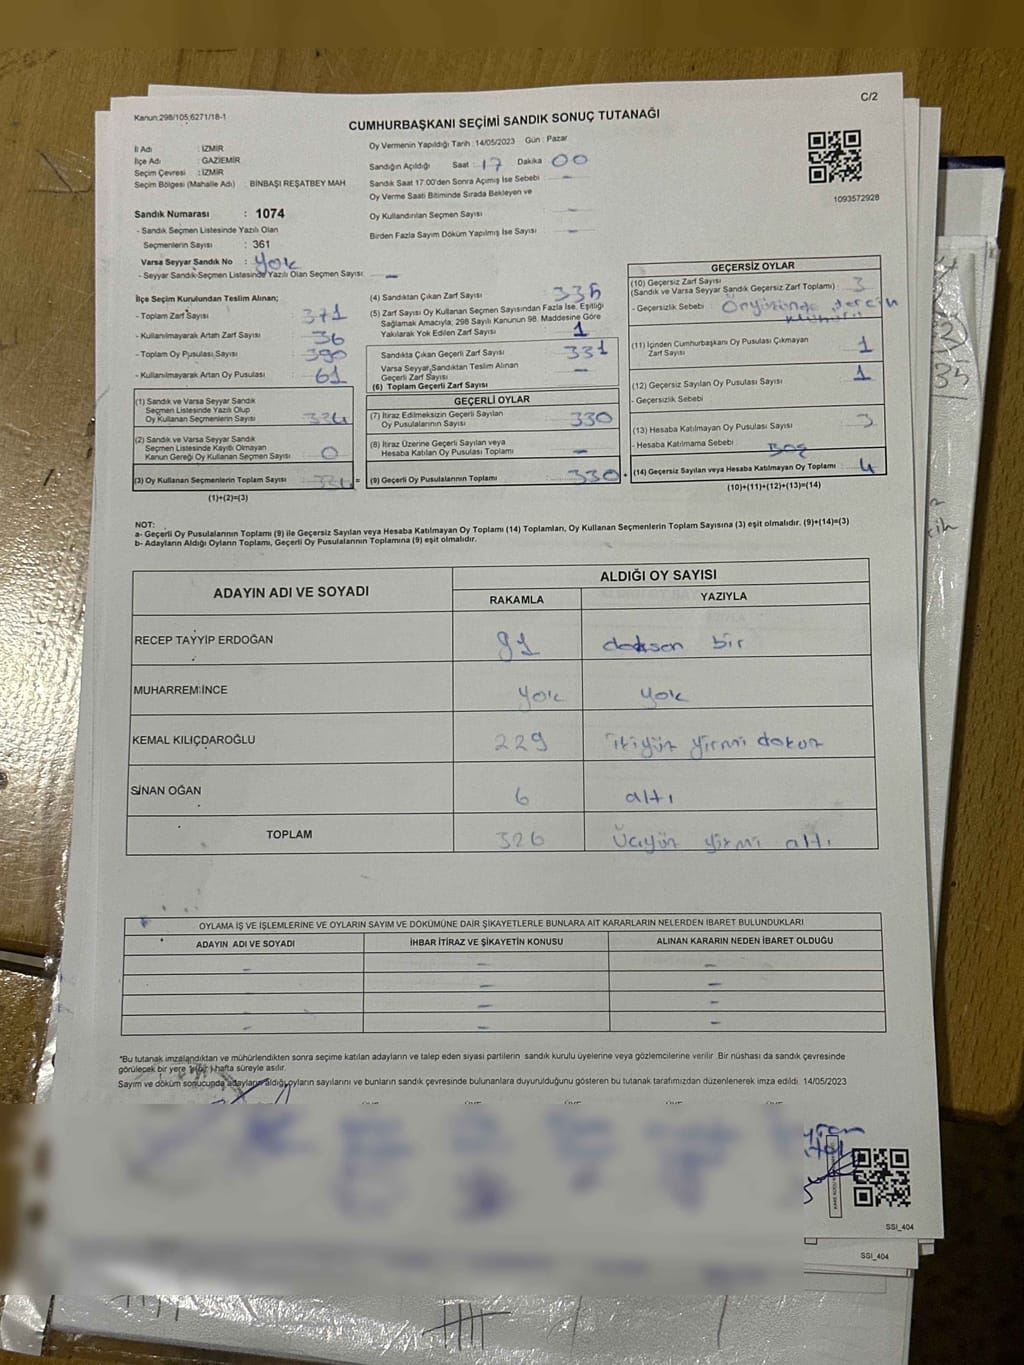 C/2
Kanun:298/105;6271/18-1
CUMHURBAŞKANI SEÇİMİ SANDIK SONUÇ TUTANAĞI
İl Adı : İZMİR
İlçe Adı : GAZİEMİR
Seçim Çevresi : İZMİR
Seçim Bölgesi (Mahalle Adı) : BİNBAŞI REŞATBEY MAH
Oy Vermenin Yapıldığı Tarih : 14/05/2023 Gün : Pazar
Sandığın Açıldığı Saat : 17 Dakika : 00
Sandık Saat 17:00'den Sonra Açımış İse Sebebi —
Oy Verme Saati Bitiminde Sırada Bekleyen ve
Oy Kullandırılan Seçmen Sayısı —
Birden Fazla Sayım Döküm Yapılmış İse Sayısı —
1093572928
Sandık Numarası : 1074
- Sandık Seçmen Listesinde Yazılı Olan
Seçmenlerin Sayısı : 361
Varsa Seyyar Sandık No : Yok
- Seyyar Sandık Seçmen Listesinde Yazılı Olan Seçmen Sayısı: —
İlçe Seçim Kurulundan Teslim Alınan;
- Toplam Zarf Sayısı 371
- Kullanılmayarak Artan Zarf Sayısı 36
- Toplam Oy Pusulası Sayısı 390
- Kullanılmayarak Artan Oy Pusulası 61
(1) Sandık ve Varsa Seyyar Sandık
Seçmen Listesinde Yazılı Olup
Oy Kullanan Seçmenlerin Sayısı
(2) Sandık ve Varsa Seyyar Sandık
Seçmen Listesinde Kayıtlı Olmayan
Kanun Gereği Oy Kullanan Seçmen Sayısı 0
(3) Oy Kullanan Seçmenlerin Toplam Sayısı =
(1)+(2)=(3)
(4) Sandıktan Çıkan Zarf Sayısı
(5) Zarf Sayısı Oy Kullanan Seçmen Sayısından Fazla İse, Eşitliği
Sağlamak Amacıyla, 298 Sayılı Kanunun 98. Maddesine Göre
Yakılarak Yok Edilen Zarf Sayısı 1
Sandıkta Çıkan Geçerli Zarf Sayısı 331
Varsa Seyyar Sandıktan Teslim Alınan
Geçerli Zarf Sayısı —
(6) Toplam Geçerli Zarf Sayısı
GEÇERLİ OYLAR
(7) İtiraz Edilmeksizin Geçerli Sayılan
Oy Pusulasının Sayısı 330
(8) İtiraz Üzerine Geçerli Sayılan veya
Hesaba Katılan Oy Pusulası Toplamı —
(9) Geçerli Oy Pusulalarının Toplamı 330 +
GEÇERSİZ OYLAR
(10) Geçersiz Zarf Sayısı
(Sandık ve Varsa Seyyar Sandık Geçersiz Zarf Toplamı) : 3
- Geçersizlik Sebebi : Önyüzünde tercih
(11) İçinden Cumhurbaşkanı Oy Pusulası Çıkmayan
Zarf Sayısı 1
(12) Geçersiz Sayılan Oy Pusulası Sayısı 1
- Geçersizlik Sebebi
(13) Hesaba Katılmayan Oy Pusulası Sayısı 3
- Hesaba Katılmama Sebebi Boş
(14) Geçersiz Sayılan veya Hesaba Katılmayan Oy Toplamı 4
(10)+(11)+(12)+(13)=(14)
NOT:
a- Geçerli Oy Pusulalarının Toplamı (9) ile Geçersiz Sayılan veya Hesaba Katılmayan Oy Toplamı (14) Toplamları, Oy Kullanan Seçmenlerin Toplam Sayısına (3) eşit olmalıdır. (9)+(14)=(3)
b- Adayların Aldığı Oyların Toplamı, Geçerli Oy Pusulalarının Toplamına (9) eşit olmalıdır.
ADAYIN ADI VE SOYADI
ALDIĞI OY SAYISI
RAKAMLA YAZIYLA
RECEP TAYYİP ERDOĞAN 91 doksan bir
MUHARREM İNCE yok yok
KEMAL KILIÇDAROĞLU 229 ikiyüz yirmi dokuz
SİNAN OĞAN 6 altı
TOPLAM 326 Üçyüz yirmi altı
OYLAMA İŞ VE İŞLEMLERİNE VE OYLARIN SAYIM VE DÖKÜMÜNE DAİR ŞİKAYETLERLE BUNLARA AİT KARARLARIN NELERDEN İBARET BULUNDUKLARI
ADAYIN ADI VE SOYADI İHBAR İTİRAZ VE ŞİKAYETİN KONUSU ALINAN KARARIN NEDEN İBARET OLDUĞU
— — —
— —
— —
— — —
*Bu tutanak imzalandıktan ve mühürlendikten sonra seçime katılan adayların ve talep eden siyasi partilerin sandık kurulu üyelerine veya gözlemcilerine verilir .Bir nüshası da sandık çevresinde
görülecek bir yere 1(bir) hafta süreyle asılır.
Sayım ve döküm sonucunda adayların aldığı oyların sayılarını ve bunların sandık çevresinde bulunanlara duyurulduğunu gösteren bu tutanak tarafımızdan düzenlenerek imza edildi. 14/05/2023
SSI_404
SSI_404